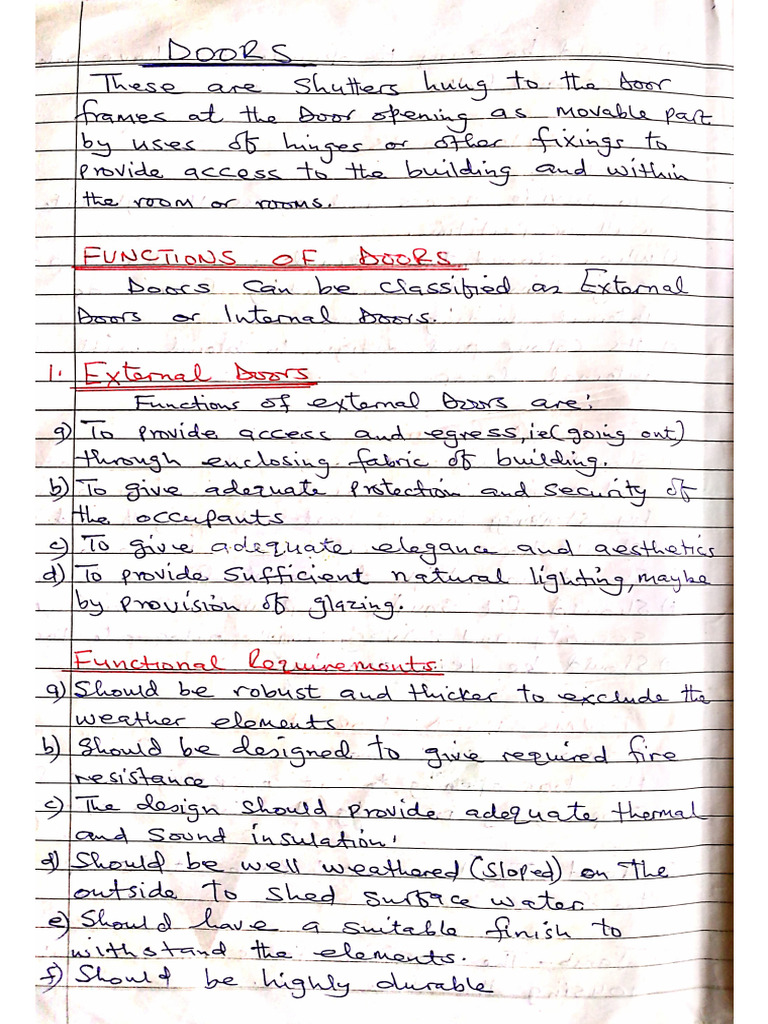 DOORS
These are shutters hung to the Door
frames at the Door opening as movable part
by uses of hinges or other fixings to
provide access to the building and within
the room or rooms.
FUNCTIONS OF DOORS
Doors can be classified as External
Doors or Internal Doors.
1. External Doors
Functions of external Doors are:
a) To provide access and egress, ie (going out)
through enclosing fabric of building.
b) To give adequate protection and security of
the occupants
c) To give adequate elegance and aesthetics
d) To provide sufficient natural lighting, maybe
by provision of glazing.
Functional Requirements.
a) Should be robust and thicker to exclude the
weather elements
b) Should be designed to give required fire
resistance
c) The design should provide adequate thermal
and sound insulation.
d) Should be well weathered (sloped) on the
outside to shed surface water.
e) Should have a suitable finish to
withstand the elements.
f) Should be highly durable